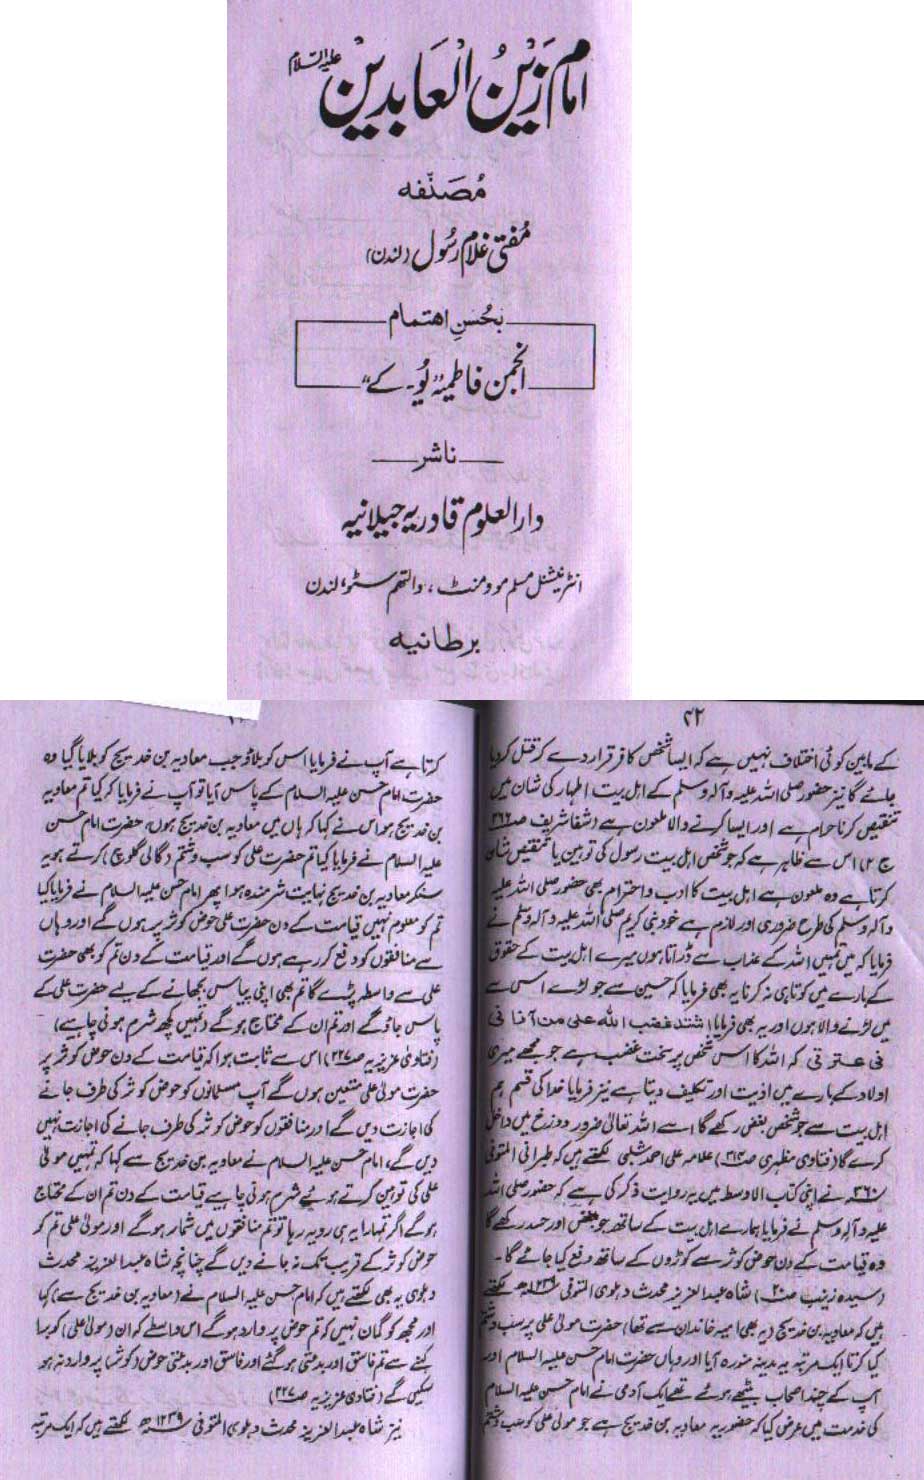 امام زین العابدین علیہ السلام
مُصنّفہ
مُفتی غلام رسُول (لندن)
بحُسنِ اهتمام
انجمن فاطمیہ "یُو۔کے"
ناشر
دار العلوم قادریہ جیلانیہ
انٹرنیشنل مسلم موومنٹ، والتھم سٹو، لندن
برطانیه
۴۲
کے مابین کوئی اختلاف نہیں ہے کہ ایسا شخص کافر قرار دے کر قتل کر دیا
جائے گا نیز حضور صلی اللہ علیہ و آلہ وسلم کے اہل بیت اطہار کی شان میں
تنقیص کرنا حرام ہے اور ایسا کرنے والا ملعون ہے (شفا شریف صـ۲۶۶
ج ۲) اس سے ظاہر ہے کہ جو شخص اہل بیت رسول کی توہین یا تنقیص شان
کرتا ہے وہ ملعون ہے اہل بیت کا ادب و احترام بھی حضور صلی اللہ علیہ
و آلہ وسلم کی طرح ضروری اور لازم ہے خود نبی کریم صلی اللہ علیہ و آلہ وسلم نے
فرمایا کہ میں تمہیں اللہ کے عذاب سے ڈراتا ہوں میرے اہل بیت کے حقوق
کے بارے میں کوتاہی نہ کرنا یہ بھی فرمایا کہ حسین سے جو لڑے اس سے
میں لڑنے والا ہوں اور یہ بھی فرمایا اشتد غضب الله على من آذانى
فى عترتى کہ اللہ کا اس شخص پر سخت غضب ہے جو مجھے میری
اولاد کے بارے میں اذیت اور تکلیف دیتا ہے نیز فرمایا خدا کی قسم ہم
اہل بیت سے جو شخص بغض رکھے گا اسے اللہ تعالیٰ ضرور دوزخ میں داخل
کرے گا (فتاوی مظہری صـ۳۱۴) علامہ علی احمد شلبی لکھتے ہیں کہ طبرانی المتوفی
۳۶۰ھ نے اپنی کتاب الاوسط میں یہ روایت ذکر کی ہے کہ حضور صلی اللہ
علیہ و آلہ وسلم نے فرمایا ہمارے اہل بیت کے ساتھ جو بغض اور حسد رکھے گا
وہ قیامت کے دن حوض کوثر سے کوڑوں کے ساتھ دفع کیا جائے گا۔
(سیدہ زینب صـ۲۰) شاہ عبدالعزیز محدث دہلوی المتوفی ۱۲۳۹ھ لکھتے
ہیں کہ معاویہ بن خدیج (یہ بھی امیہ خاندان سے تھا) حضرت مولیٰ علی پر سب و شتم
کیا کرتا ایک مرتبہ یہ مدینہ منورہ آیا اور وہاں حضرت امام حسن علیہ السلام اور
آپ کے چند اصحاب بیٹھے ہوئے تھے ایک آدمی نے امام حسن علیہ السلام
کی خدمت میں عرض کیا کہ حضور یہ معاویہ بن خدیج ہے جو مولیٰ علی کو سب و شتم
کرتا ہے آپ نے فرمایا اس کو بلاؤ جب معاویہ بن خدیج کو بلایا گیا وہ
حضرت امام حسن علیہ السلام کے پاس آیا تو آپ نے فرمایا کہ کیا تم معاویہ
بن خدیج ہو اس نے کہا کہ ہاں میں معاویہ بن خدیج ہوں، حضرت امام حسن
علیہ السلام نے فرمایا کیا تم حضرت علی کو سب و شتم (گالی گلوچ) کرتے ہو یہ
سنکر معاویہ بن خدیج نہایت شرمندہ ہوا پھر امام حسن علیہ السلام نے فرمایا کیا
تم کو معلوم نہیں قیامت کے دن حضرت علی حوض کوثر پر ہوں گے اور وہاں
سے منافقوں کو دفع کر رہے ہوں گے اور قیامت کے دن تم کو بھی حضرت
علی سے واسطہ پڑے گا تم بھی اپنی پیاس بجھانے کے لیے حضرت علی کے
پاس جاؤ گے اور تم ان کے محتاج ہو گے (تمہیں کچھ شرم ہونی چاہیے)
(فتاویٰ عزیزیہ صـ۲۲۷) اس سے ثابت ہوا کہ قیامت کے دن حوض کوثر پر
حضرت مولیٰ علی متعین ہوں گے آپ مسلمانوں کو حوض کوثر کی طرف جانے
کی اجازت دیں گے اور منافقوں کو حوض کوثر کی طرف جانے کی اجازت نہیں
دیں گے، امام حسن علیہ السلام نے معاویہ بن خدیج سے کہا کہ تمہیں مولیٰ
علی کی توہین کرتے ہوئے شرم ہونی چاہیے قیامت کے دن تم ان کے محتاج
ہو گے اگر تمہارا یہی رویہ رہا تو تم منافقوں میں شمار ہو گے اور مولیٰ علی تم کو
حوض کوثر کے قریب تک نہ جانے دیں گے چنانچہ شاہ عبدالعزیز محدث
دہلوی یہ بھی لکھتے ہیں کہ امام حسن علیہ السلام نے (معاویہ بن خدیج سے) کہا
اور مجھ کو گمان نہیں کہ تم حوض پر وارد ہو گے اس واسطے کہ ان (مولیٰ علی) کو برا
کہنے سے تم فاسق اور بدعتی ہو گئے اور فاسق اور بدعتی حوض (کوثر) پر وارد نہ ہو
سکیں گے (فتاویٰ عزیزیہ صـ۲۲۷)
نیز شاہ عبدالعزیز محدث دہلوی المتوفی ۱۲۳۹ھ لکھتے ہیں کہ ایک مرتبہ